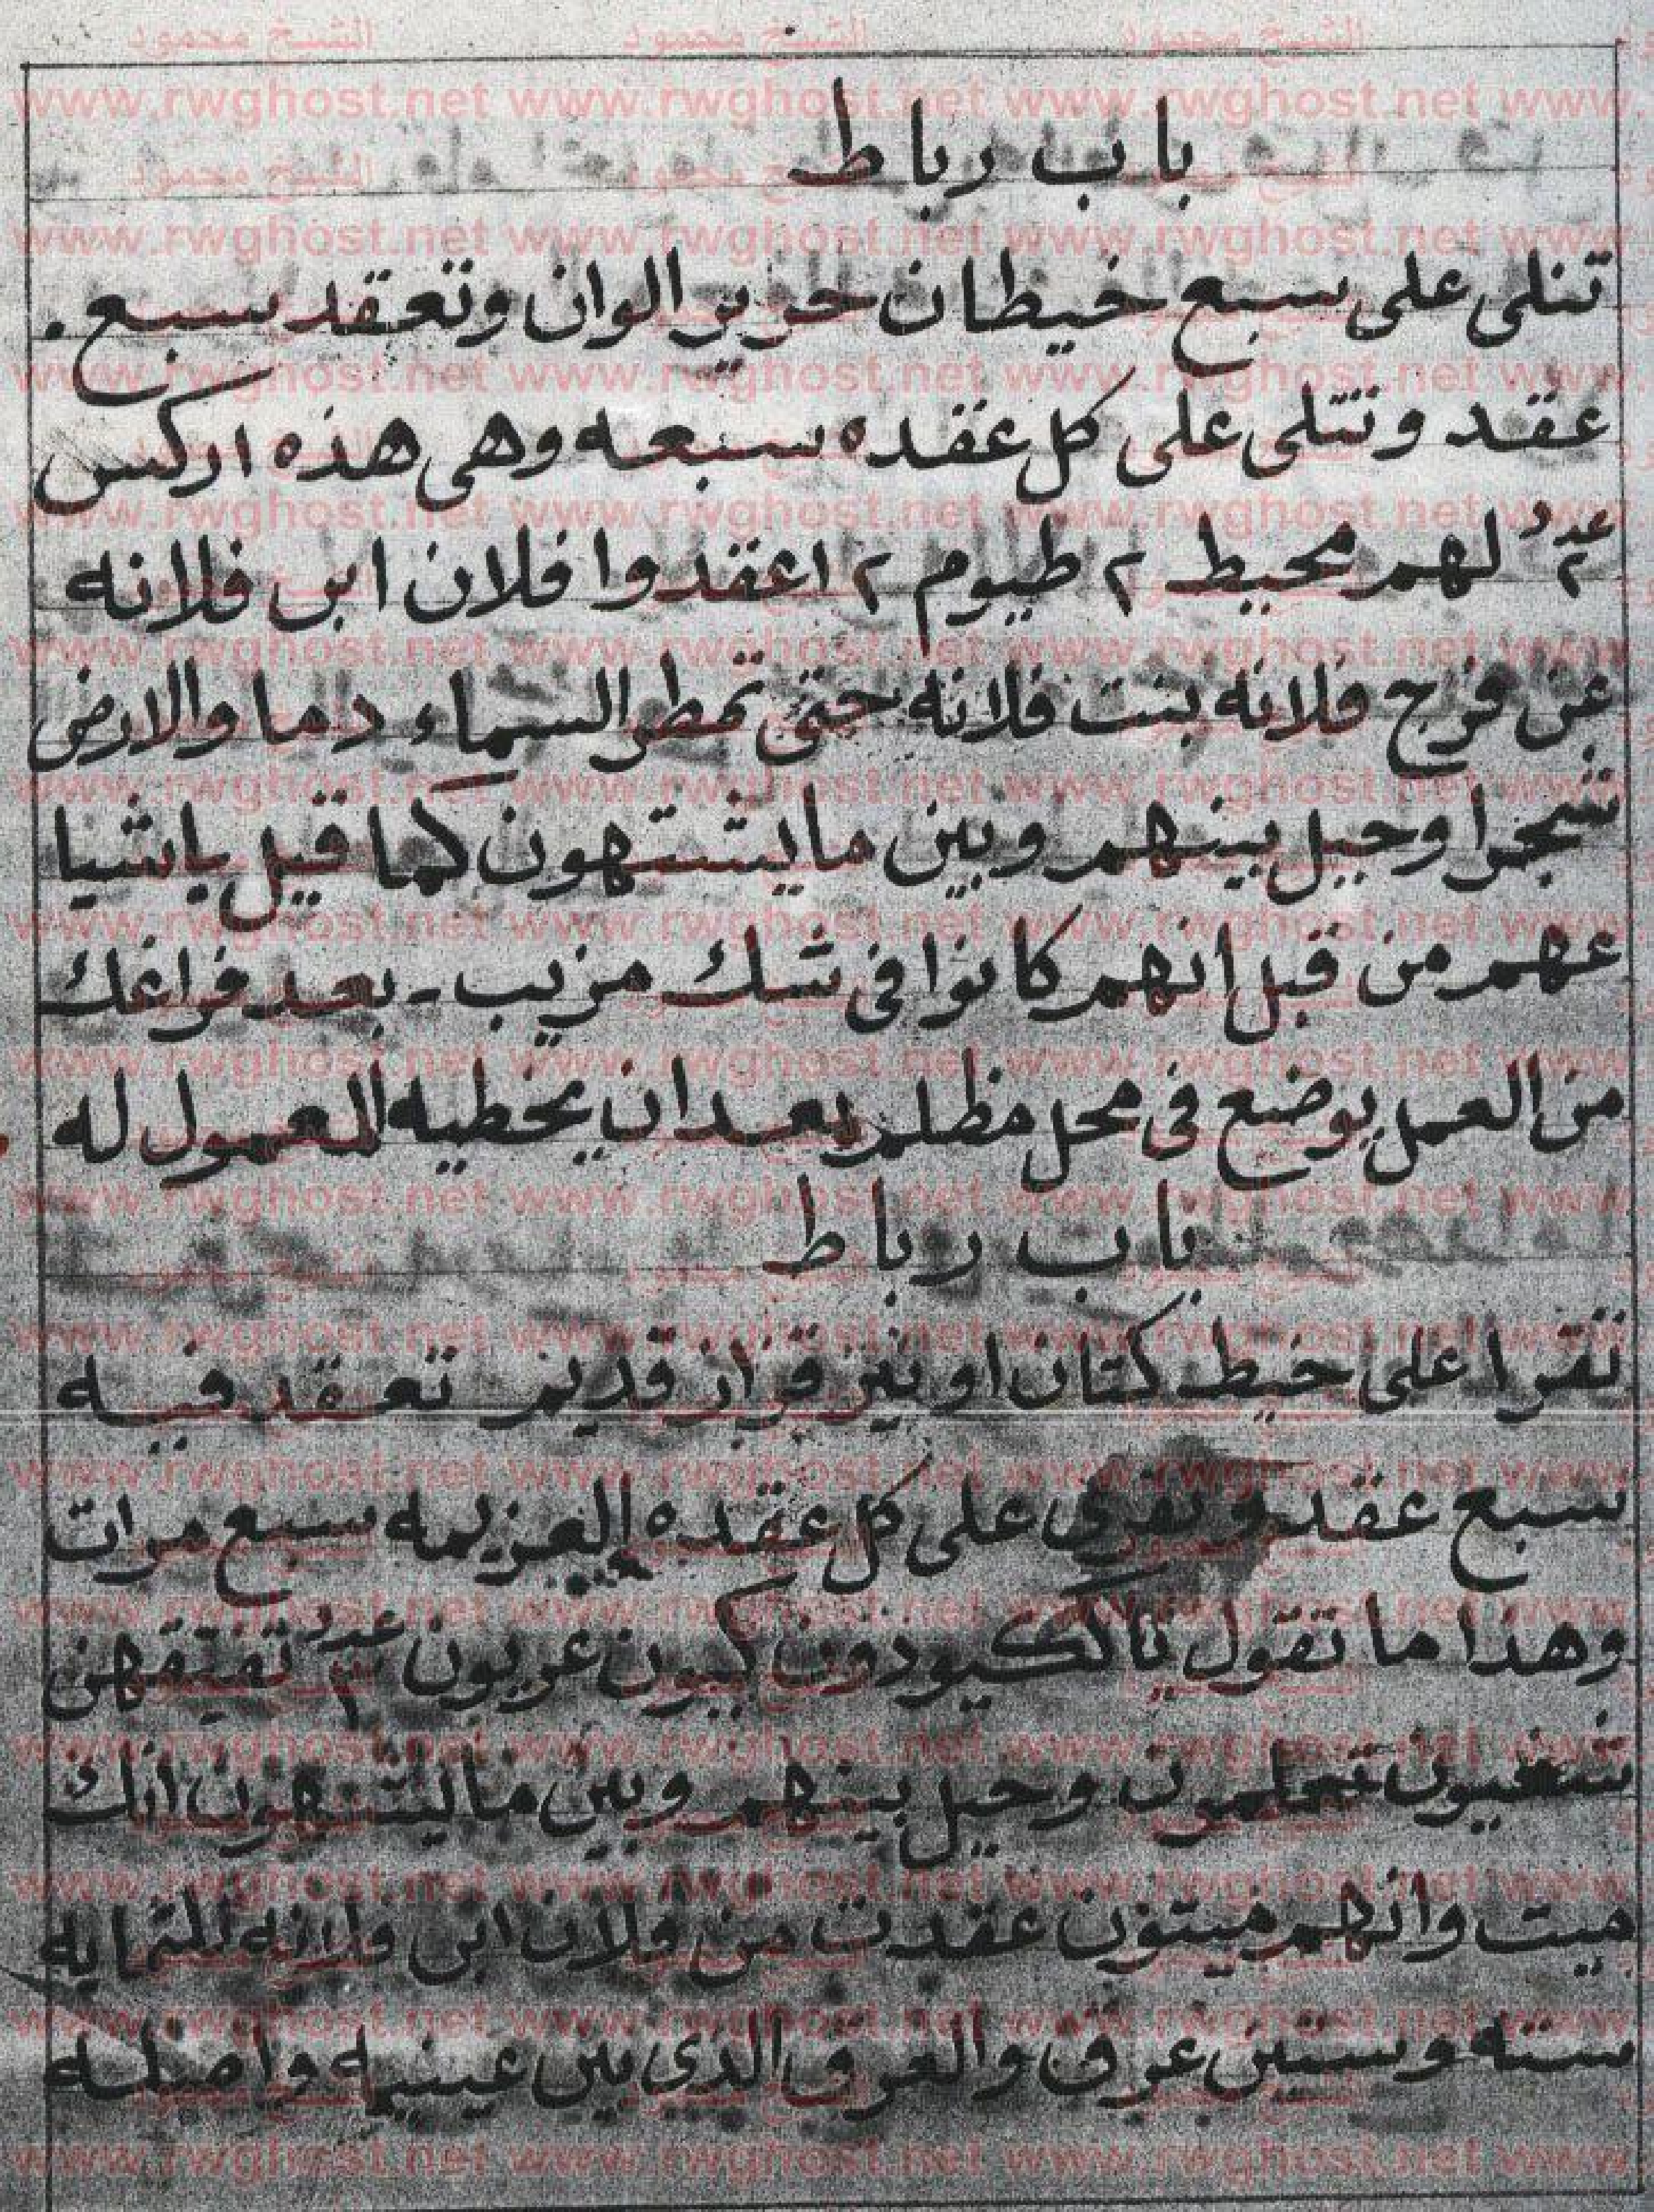 باب رباط
تتلى على سبع خيطان حرير الوان وتعقد سبع
عقد وتتلى على كل عقده سبعه وهى هذه اركس
عدد ٢ لهم محيط ٢ طيوم ٢ اعقدوا فلان ابن فلانه
عن فرج فلانه بنت فلانه حتى تمطر السماء دما والارض
شجرا وحيل بينهم وبين ما يشتهون كما فيل باشيا
عهم من قبل انهم كانوا فى شك مريب - بعد فراغك
من العمل يوضع فى محل مظلم بعد ان يخطيه المعمول له
باب رباط
تقرا على خيط كتان او نير قزاز قديم تعقد فيه
سبع عقد وتقرى على كل عقده العزيمه سبع مرات
وهذا ما تقول عدد ٣
وحيل بينهم وبين ما يشتهون انك
ميت وانهم ميتون عقدت من فلان ابن فلانه ثلثمايه
سته وستين عرق والعرق الذى بين عينيه واصله
الشيخ محمود
www.rwghost.net